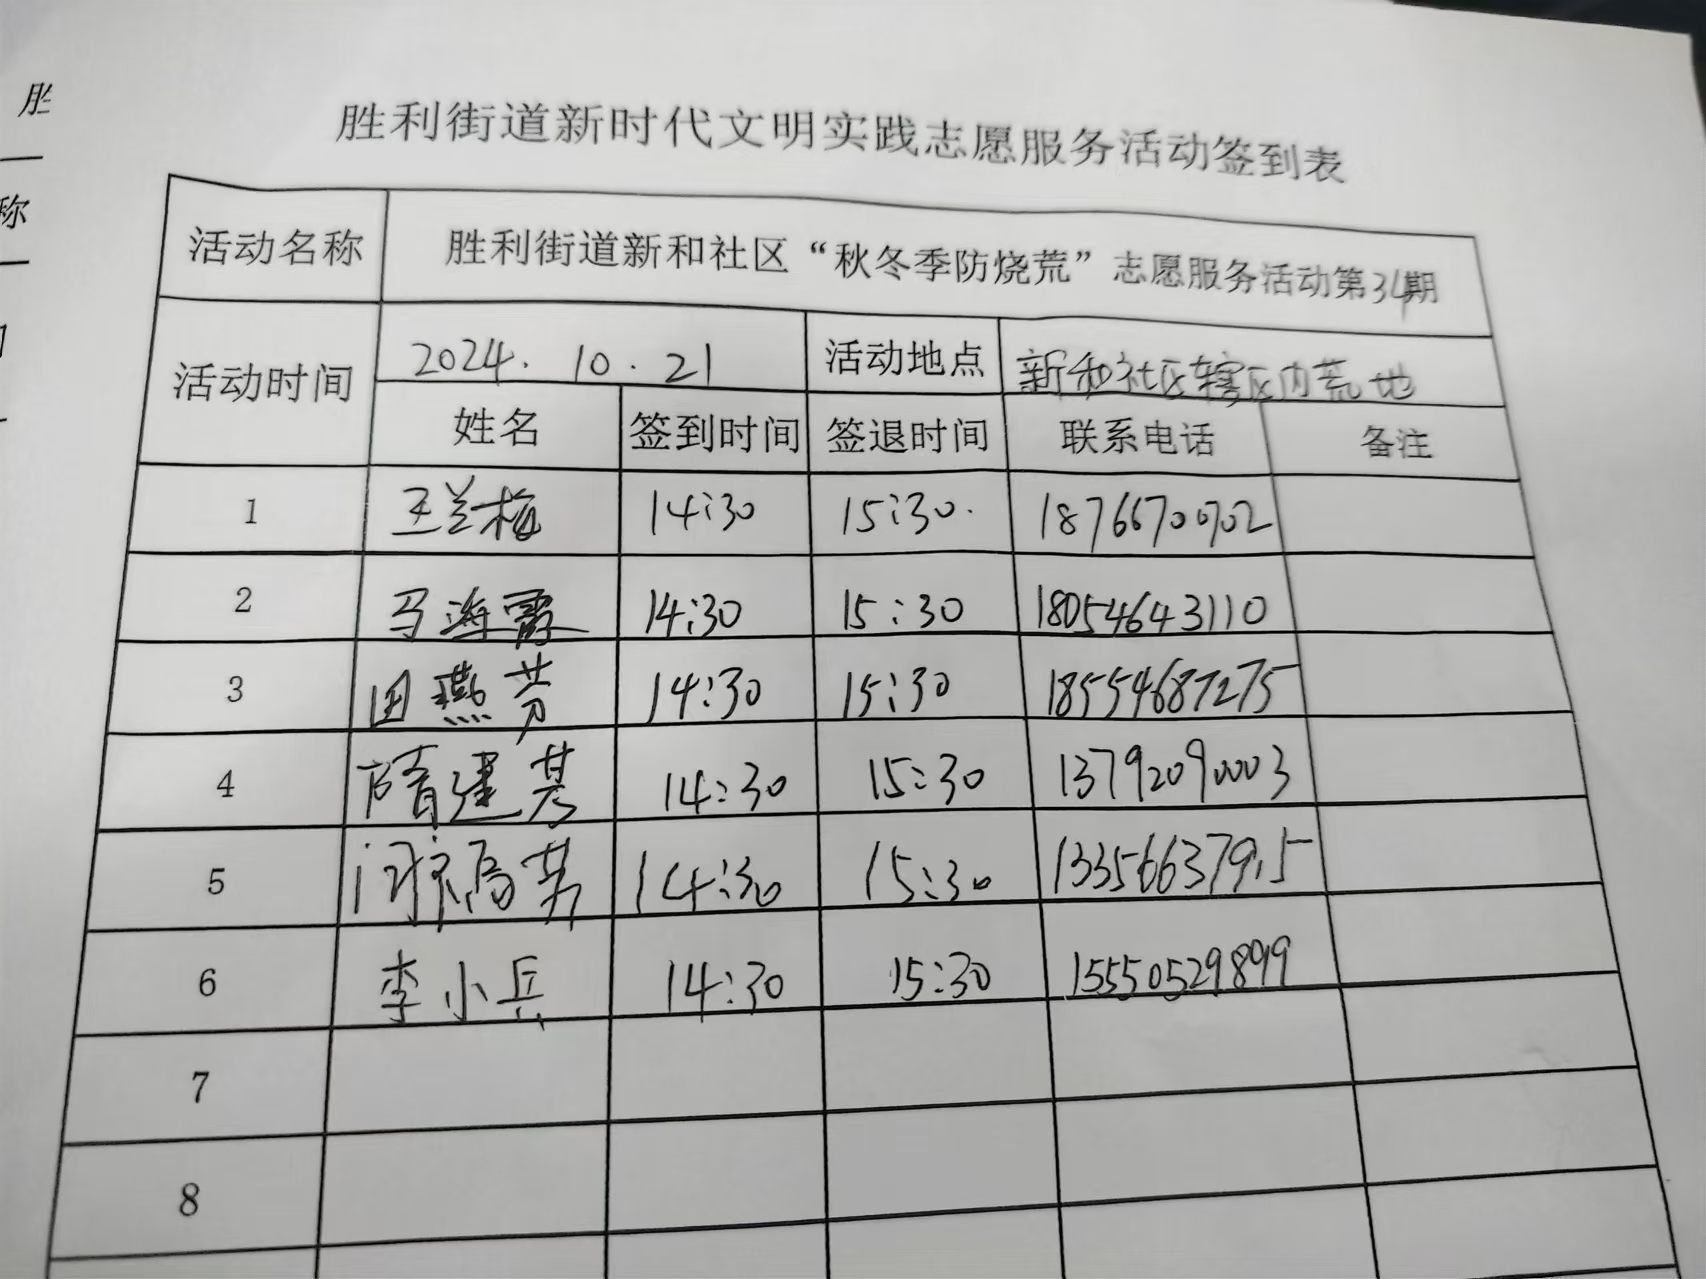 胜利街道新时代文明实践志愿服务活动签到表
活动名称 胜利街道新和社区“秋冬季防烧荒”志愿服务活动第34期
活动时间 2024.10.21 活动地点 新和社区辖区内荒地
姓名 签到时间 签退时间 联系电话 备注
1 王兰梅 14:30 15:30. 18766700702
2 马海霞 14:30 15:30 18054643110
3 田燕芳 14:30 15:30 18554687275
4 隋建芸 14:30 15:30 13792090003
5 14:30 15:30 13356637915
6 李小兵 14:30 15:30 15550529899
7
8
胜
称